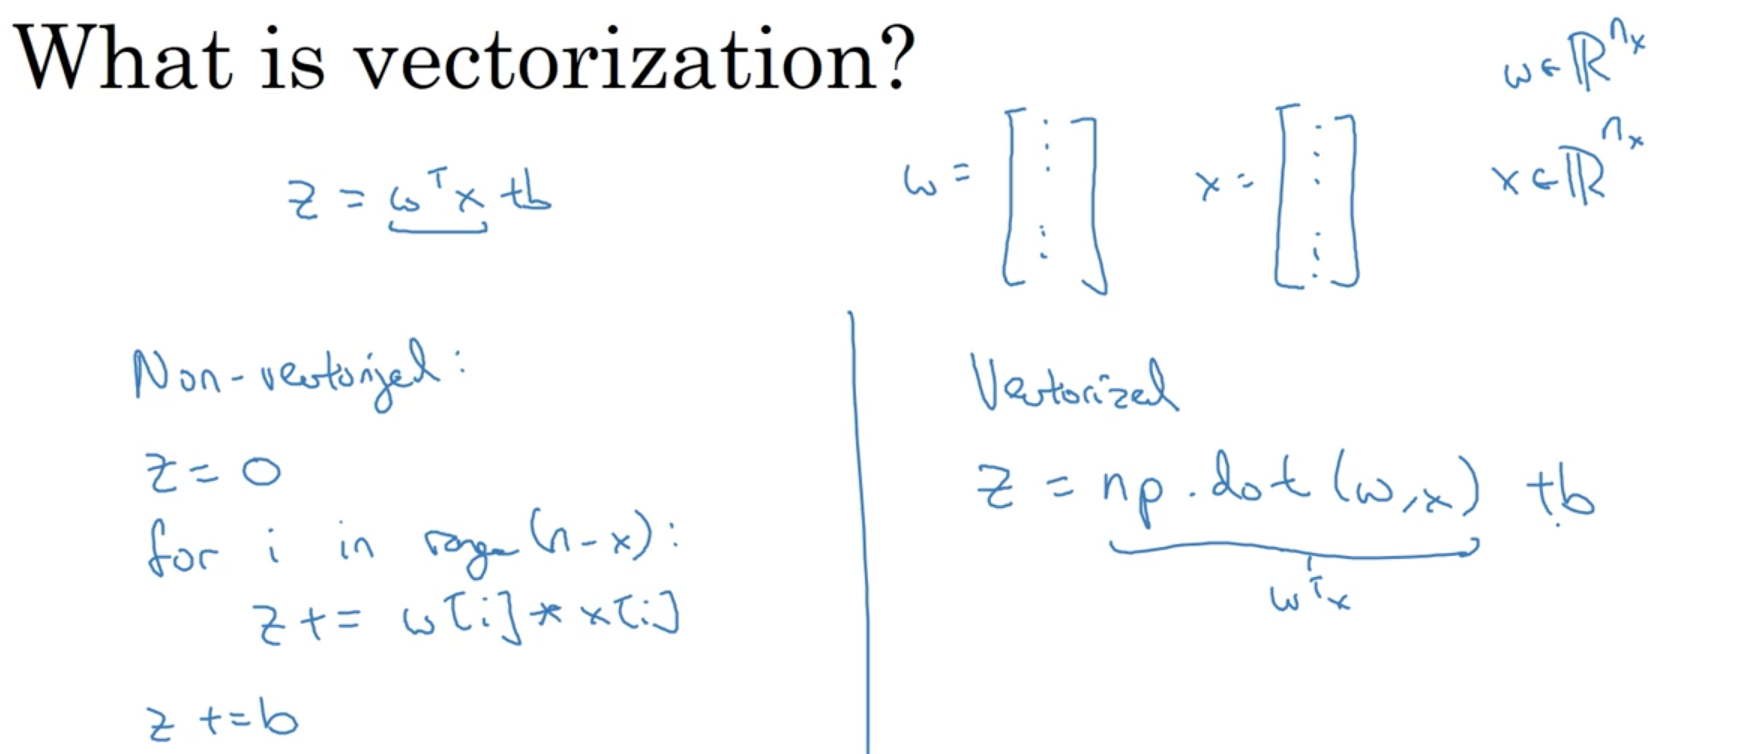 What is vectorization?
z = wᵀx + b
w = [⋮ ⋮] x = [⋮ ⋮] w ∈ ℝⁿˣ
x ∈ ℝⁿˣ
Non-vectorized:
z = 0
for i in range(n-x):
z += w[i] * x[i]
z += b
Vectorized
z = np.dot(w,x) + b
wᵀx